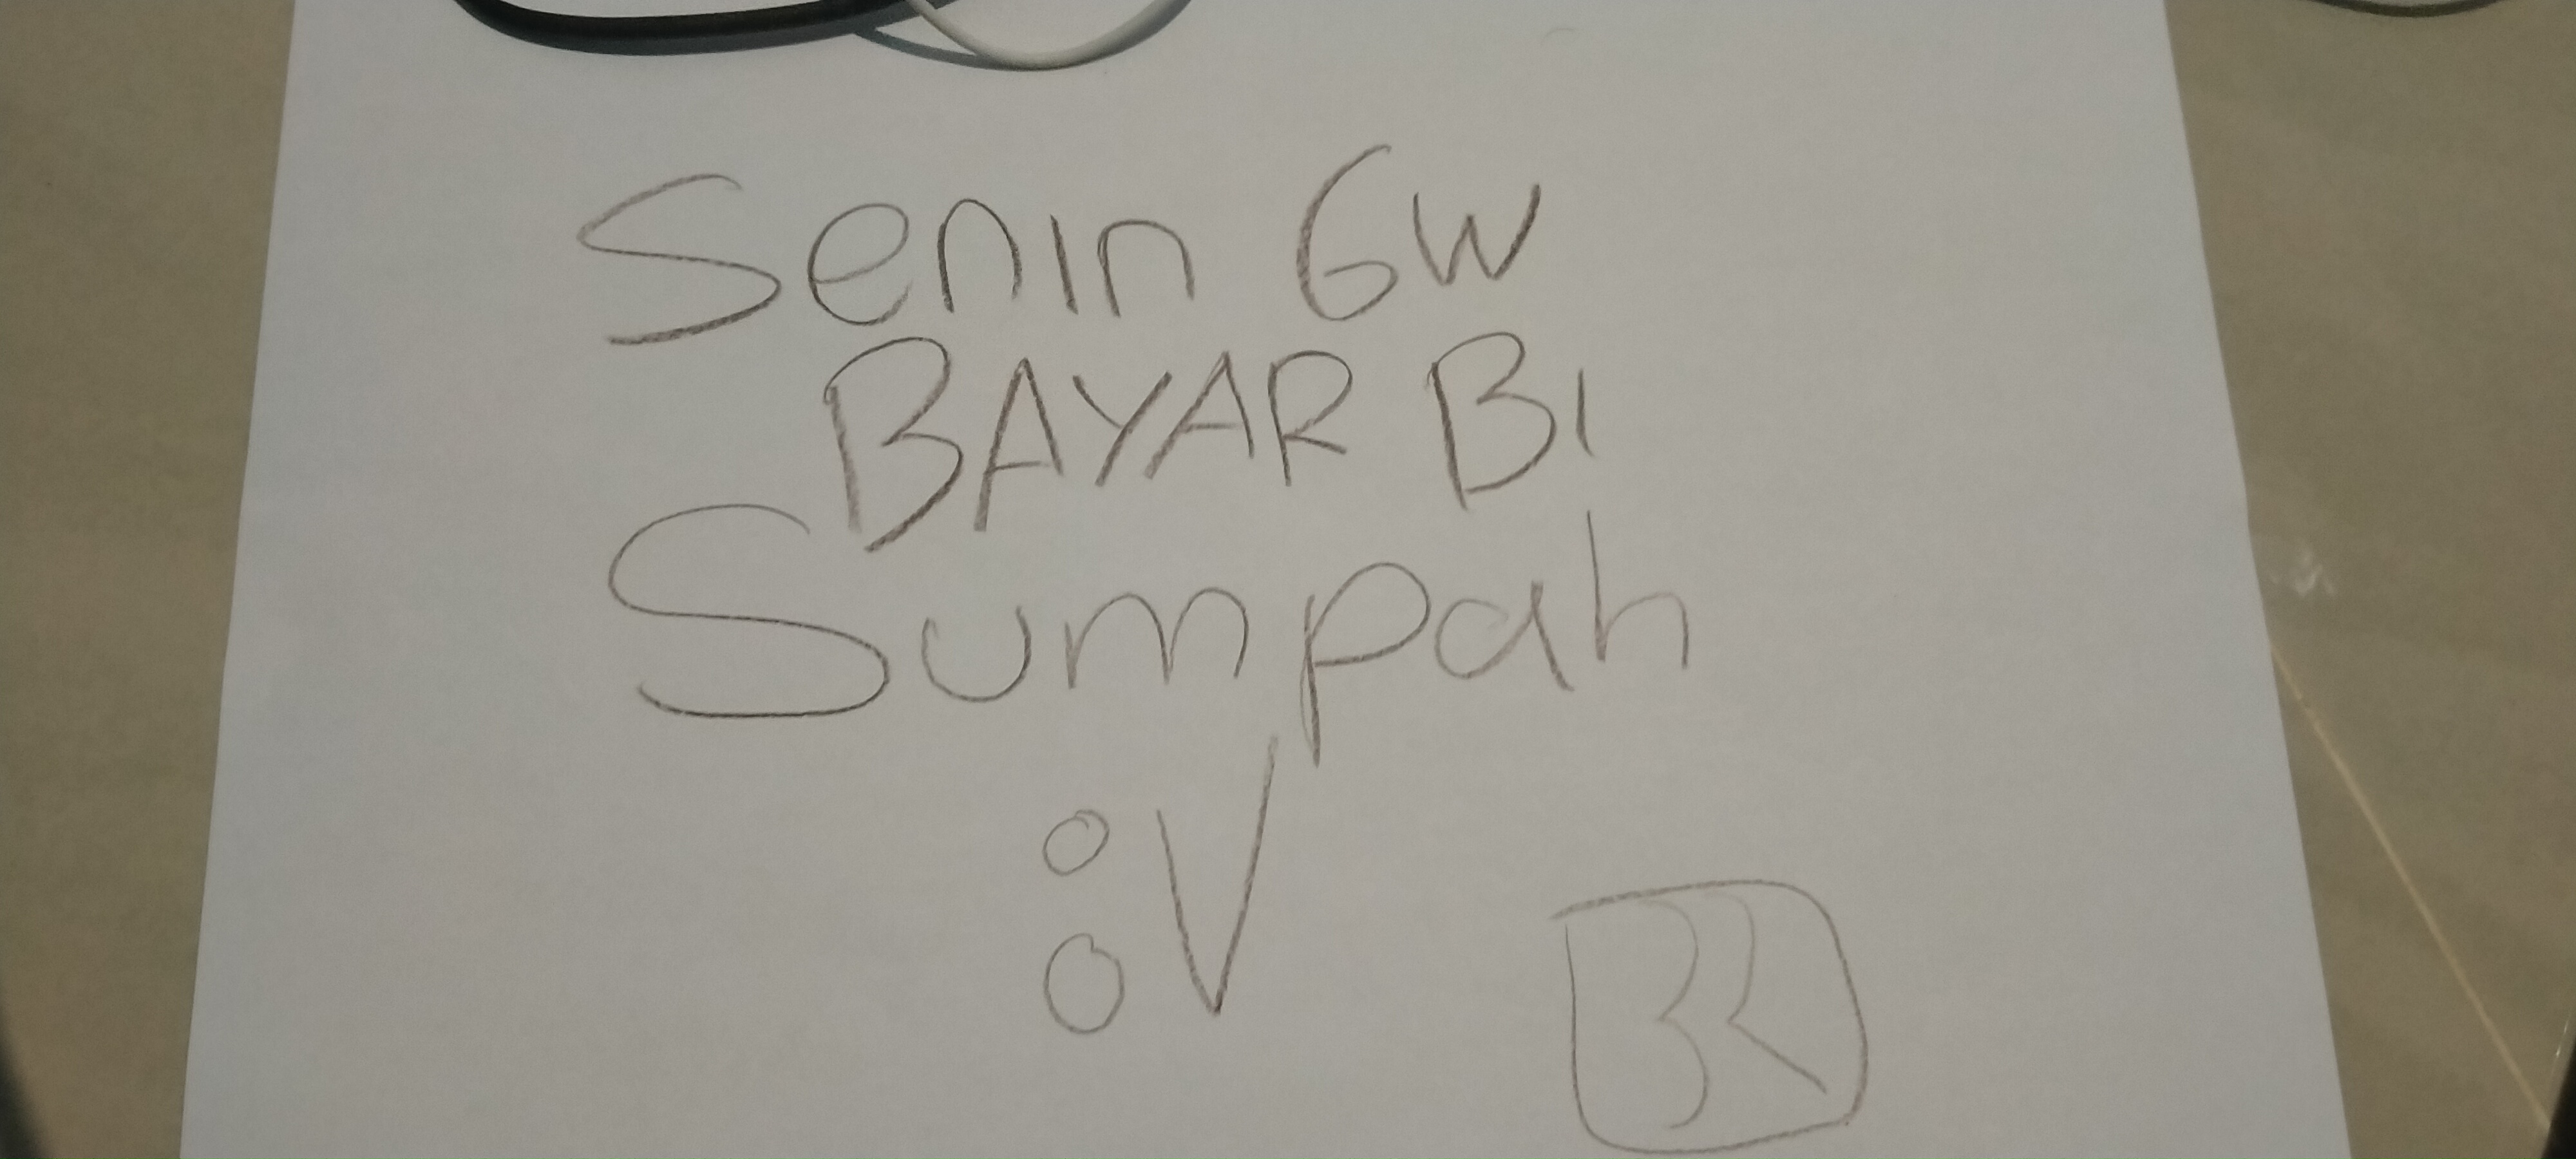 Senin GW
BAYAR BI
Sumpah
:V
BR